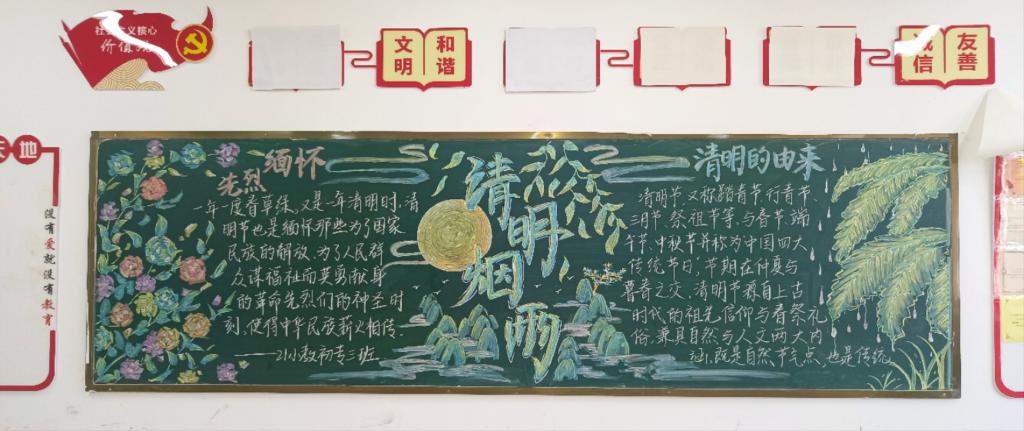 社会主义核心
价值观
文明
和谐
诚信
友善
天地
没有爱就没有教育
缅怀
先烈
一年一度春草绿，又是一年清明时，清
明节也是缅怀那些为了国家
民族的解放，为了人民群
众谋福祉而英勇献身
的革命先烈们的神圣时
刻，使得中华民族薪火相传。
——21小教初专三班
清明烟雨
清明的由来
清明节，又称踏青节、行青节、
三月节、祭祖节等，与春节、端
午节、中秋节并称为中国四大
传统节日，节期在仲夏与
暮春之交，清明节源自上古
时代的祖先信仰与春祭礼
俗，兼具自然与人文两大内
涵，既是自然节气点，也是传统